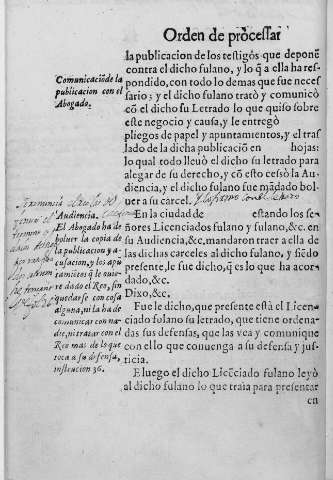 Orden de processar
la publicacion de los testigos que deponẽ
contra el dicho fulano, y lo q̃ a ella ha res-
pondido, con todo lo demas que fue neces-
sario; y el dicho fulano tratò y comunicò
cõ el dicho su Letrado lo que quiso sobre
este negocio y causa, y le entregò
pliegos de papel y apuntamientos, y el tras
lado de la dicha publicaciõ en hojas:
lo qual todo lleuò el dicho su letrado para
alegar de su derecho, y cõ esto cesò la Au-
diencia, y el dicho fulano fue mãdado bol-
uer a su carcel.
En la ciudad de estando los se-
ñores Licenciados fulano y fulano, &c. en
su Audiencia, &c. mandaron traer a ella de
las dichas carceles al dicho fulano, y siẽdo
presente, le fue dicho, q̃ es lo que ha acor-
dado, &c.
Dixo, &c.
Fue le dicho, que presente està el Licen-
ciado fulano su letrado, que tiene ordena-
das sus defensas, que las vea y comunique
con ello que conuenga a su defensa y jus-
ticia.
E luego el dicho Licẽciado fulano leyò
al dicho fulano lo que traia para presentar
en
Comunicaciõ de la
publicacion con el
Abogado.
Audiencia.
El Abogado ha de
boluer la copia de
la publicacion y a-
cusacion, y los apũ
tamiẽtos q̃ le huuie-
re dado el Reo, sin
quedarse con cosa
alguna, ni la ha de
comunicar con na-
die, ni tratar con el
Reo mas de lo que
toca a su defensa,
instrucion 36.